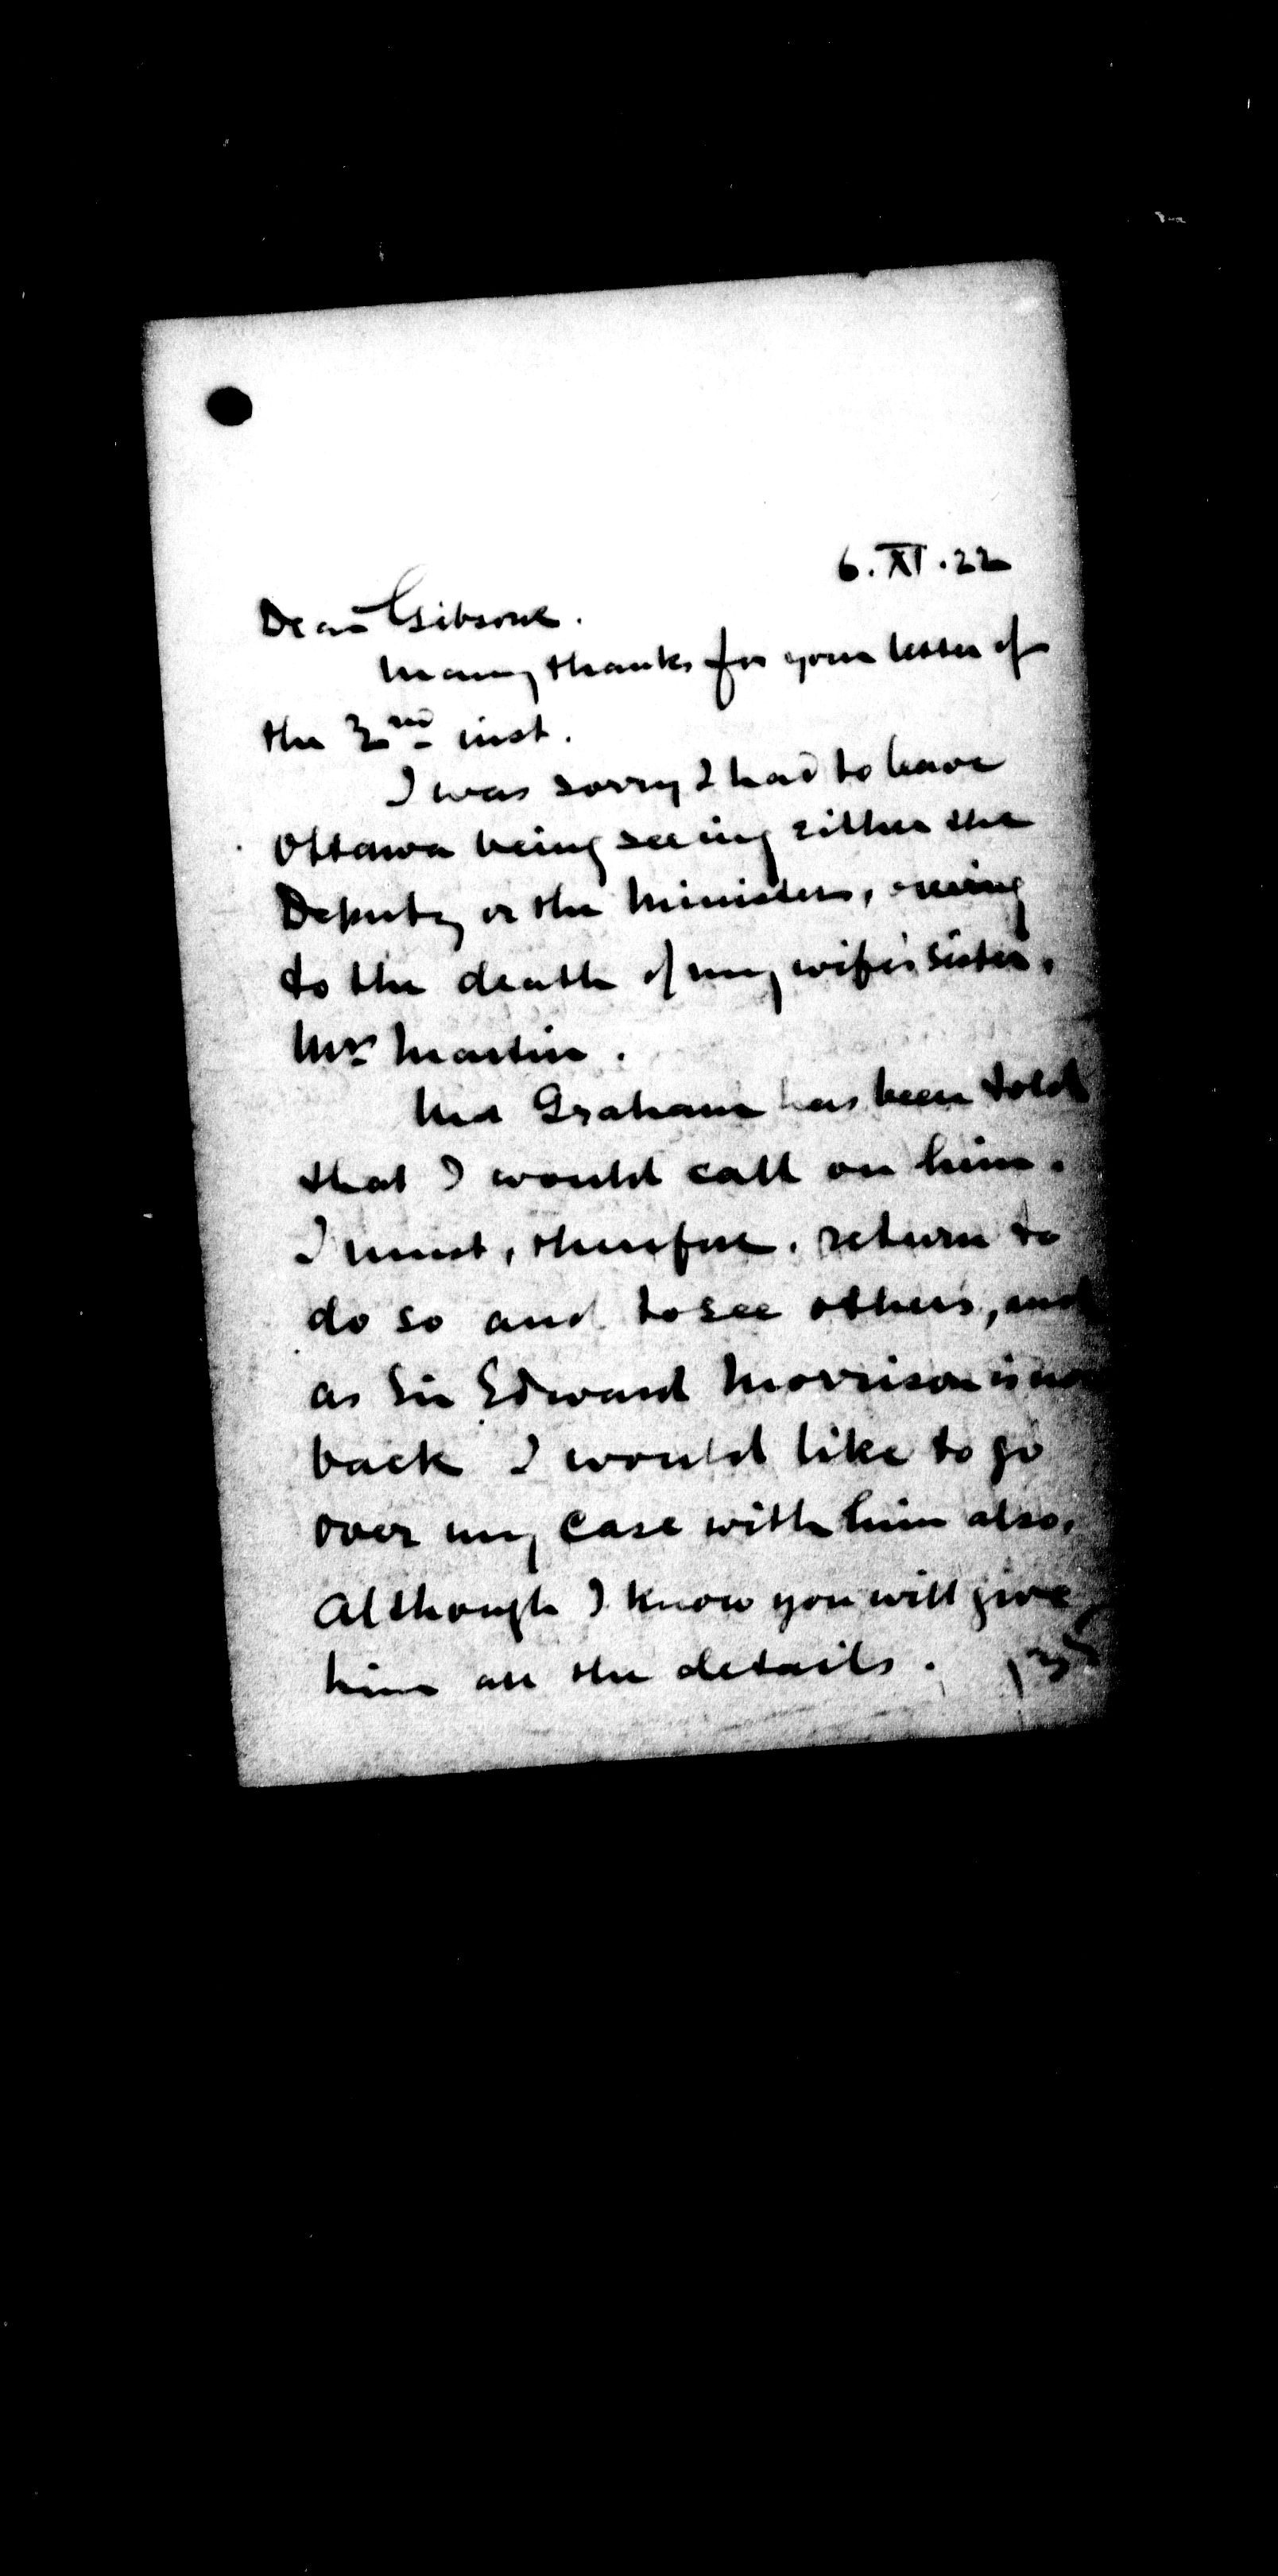 6.XI.22
Dear Gibsone.
Many thanks for your letter of
the 2nd inst.
I was sorry I had to leave
Ottawa being seeing either the
Deputy or the Minister, owing
to the death of my wife's sister,
Mrs Martin.
Mr Graham has been told
that I would call on him.
I must, therefore, return to
do so and to see others, and
as Sir Edward Morrison is now
back I would like to go
over my case with him also,
Although I know you will give
him all the details.
135